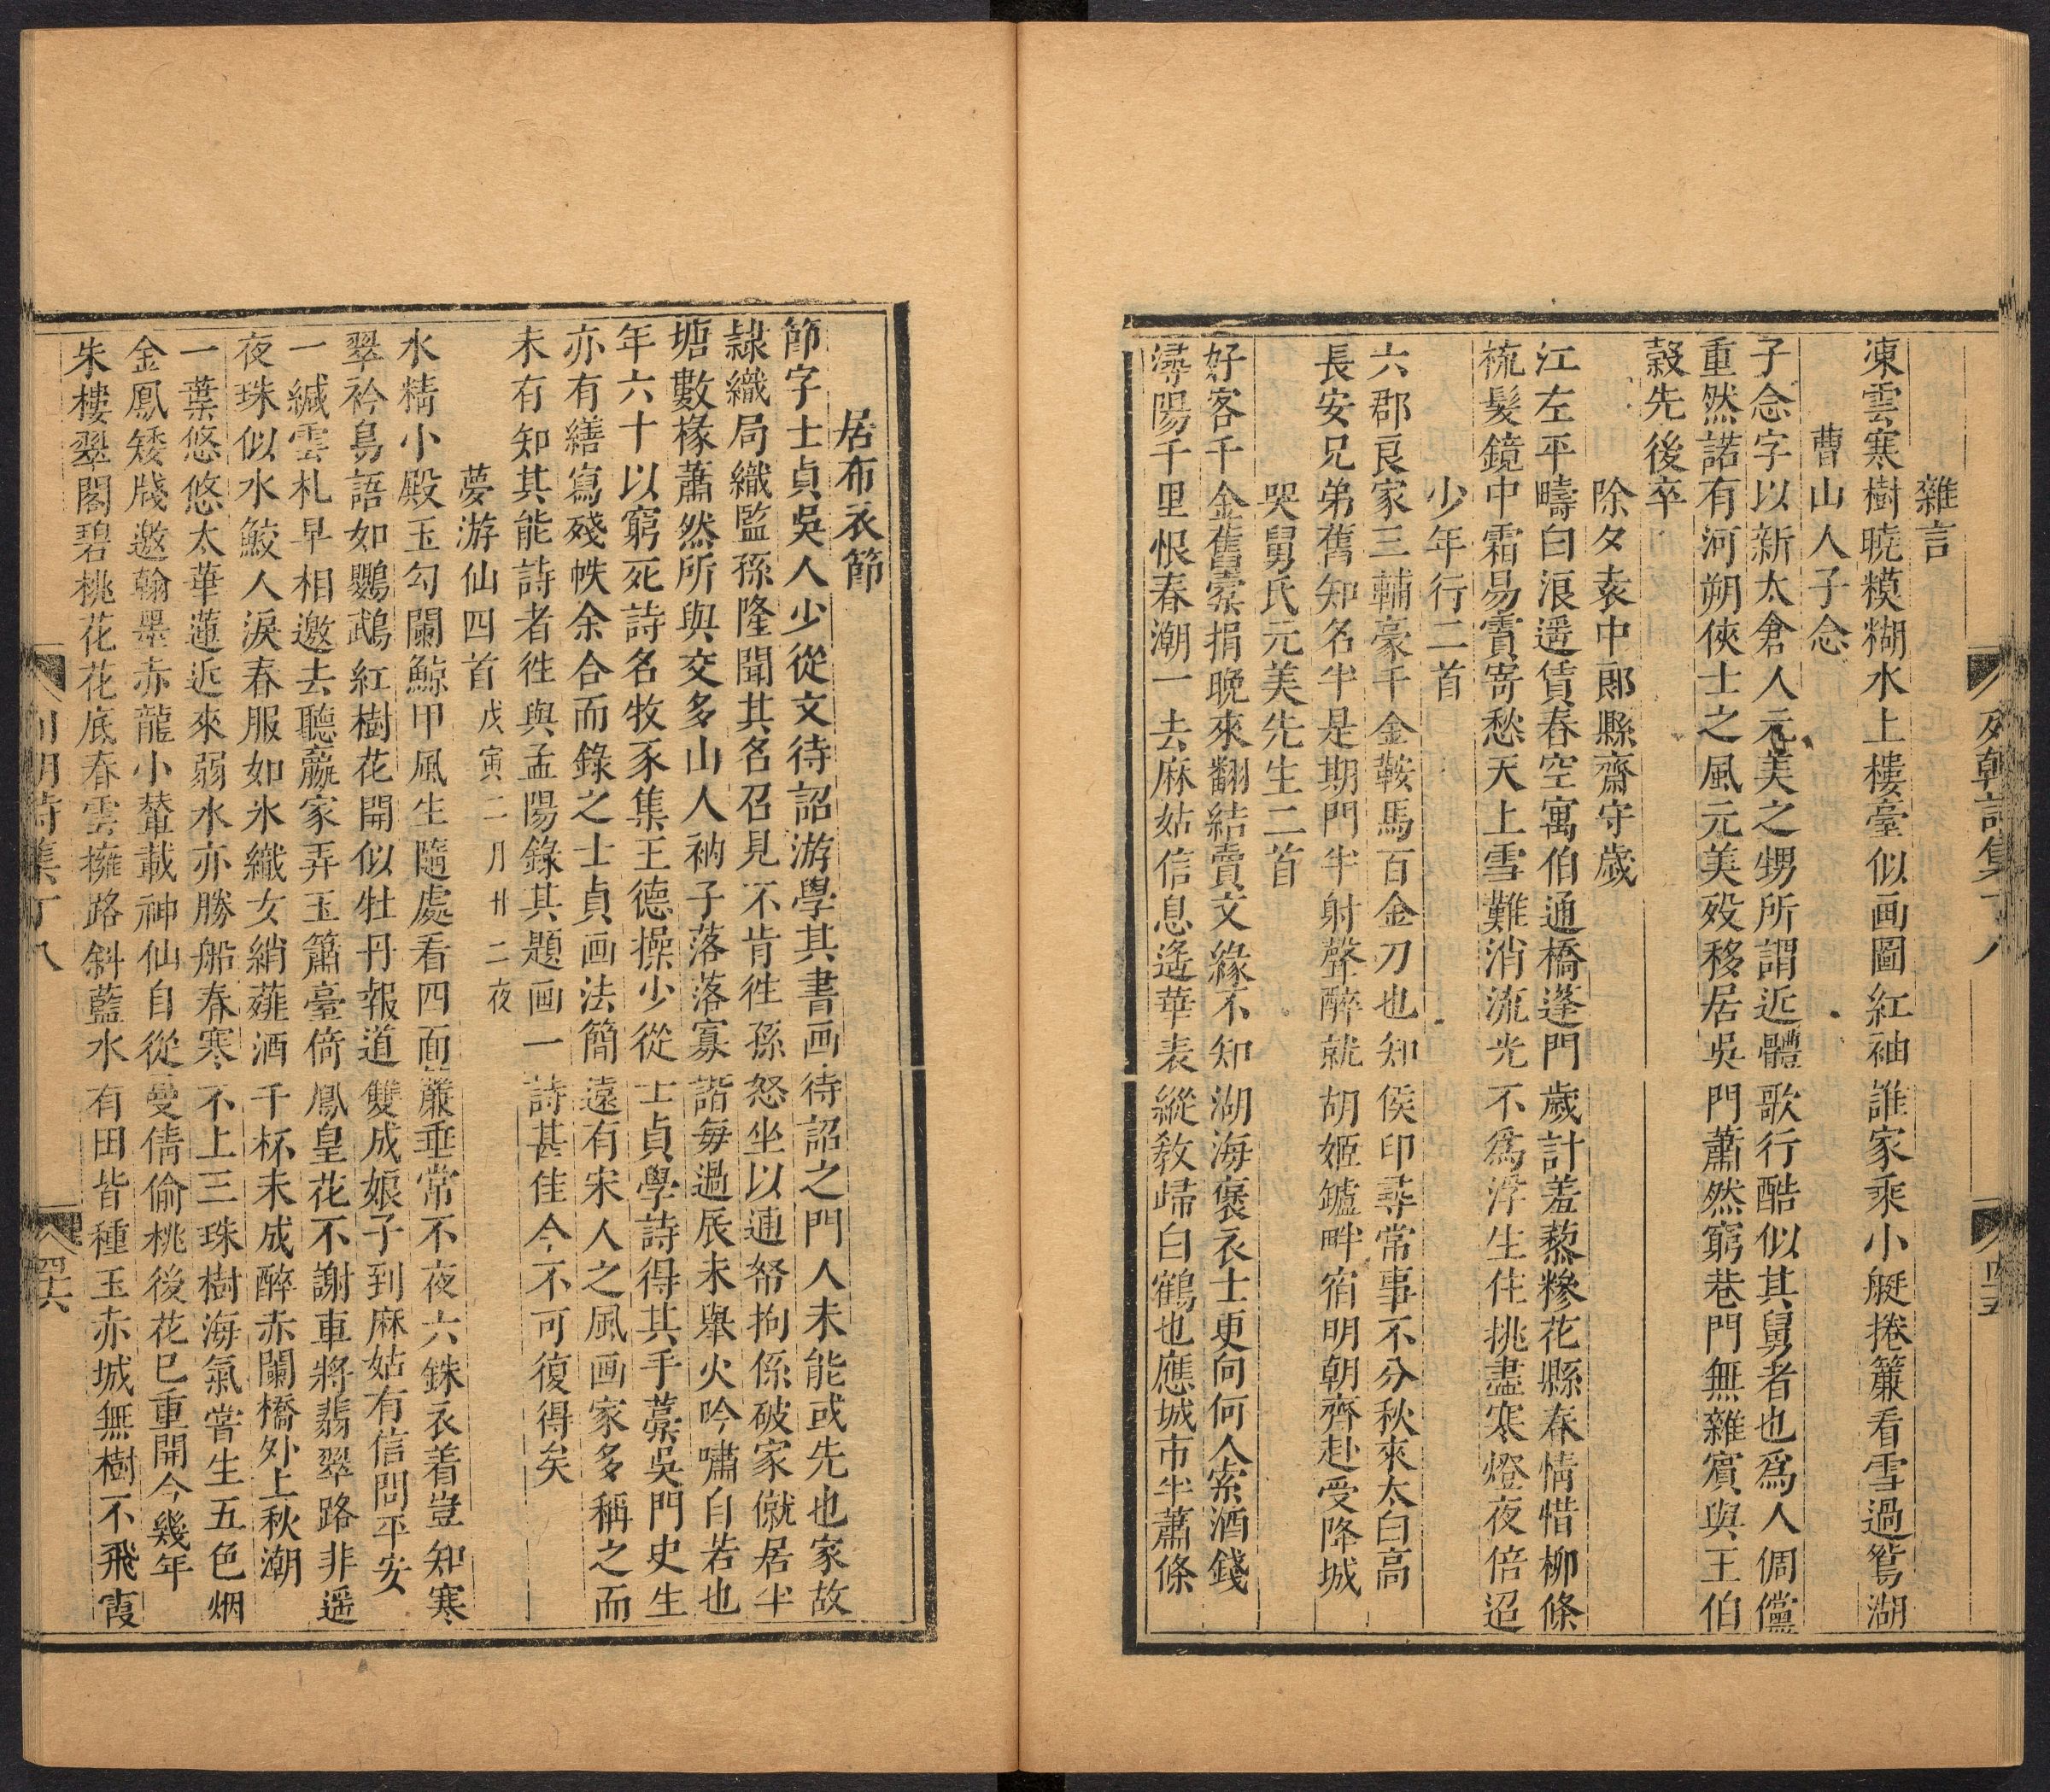 雜言
凍雲寒樹曉模糊水上樓臺似画圖紅袖誰家乘小艇捲簾看雪過鴛湖
曹山人子念
子念字以新太倉人元美之甥所謂近體歌行酷似其舅者也爲人倜儻
重然諾有河朔俠士之風元美歿移居吳門蕭然窮巷門無雜賓與王伯
穀先後卒
除夕袁中郎縣齋守歲
江左平疇白浪遥賃春空寓伯通橋蓬門歲計羞藜糝花縣春情惜柳條
梳髮鏡中霜易賣寄愁天上雪難消流光不爲浮生住挑盡寒燈夜倍迢
少年行二首
六郡良家三輔豪千金鞍馬百金刀也知侯印尋常事不分秋來太白高
長安兄弟舊知名半是期門半射聲醉就胡姬鑪畔宿明朝齊赴受降城
哭舅氏元美先生二首
好客千金舊橐捐晚來翻結賣文緣不知湖海褒衣士更向何人索酒錢
潯陽千里恨春潮一去麻姑信息遙華表縱敎歸白鶴也應城市半蕭條
列朝詩集丁八
四五
居布衣節
節字士貞吳人少從文待詔游學其書画待詔之門人未能或先也家故
隸織局織監孫隆聞其名召見不肯徃孫怒坐以逋帑拘係破家僦居半
塘數椽蕭然所與交多山人衲子落落寡諧每過辰未舉火吟嘯自若也
年六十以窮死詩名牧豕集王德操少從士貞學詩得其手藁吳門史生
亦有繕寫殘帙余合而錄之士貞画法簡遠有宋人之風画家多稱之而
未有知其能詩者徃與孟陽錄其題画一詩甚佳今不可復得矣
夢游仙四首 戊寅二月廿二夜
水精小殿玉勾闌鯨甲風生隨處看四面簾垂常不夜六銖衣着豈知寒
翠衿鳥語如鸚鵡紅樹花開似牡丹報道雙成娘子到麻姑有信問平安
一緘雲札早相邀去聽嬴家弄玉簫臺倚鳳皇花不謝車將翡翠路非遥
夜珠似水鮫人淚春服如氷織女綃蕹酒千杯未成醉赤闌橋外上秋潮
一葉悠悠太華蓮近來弱水亦勝船春寒不上三珠樹海氣嘗生五色烟
金鳳矮牋邀翰墨赤龍小輦載神仙自從曼倩偷桃後花巳重開今幾年
朱樓翠閣碧桃花花底春雲擁路斜藍水有田皆種玉赤城無樹不飛霞
列朝詩集丁八
四六